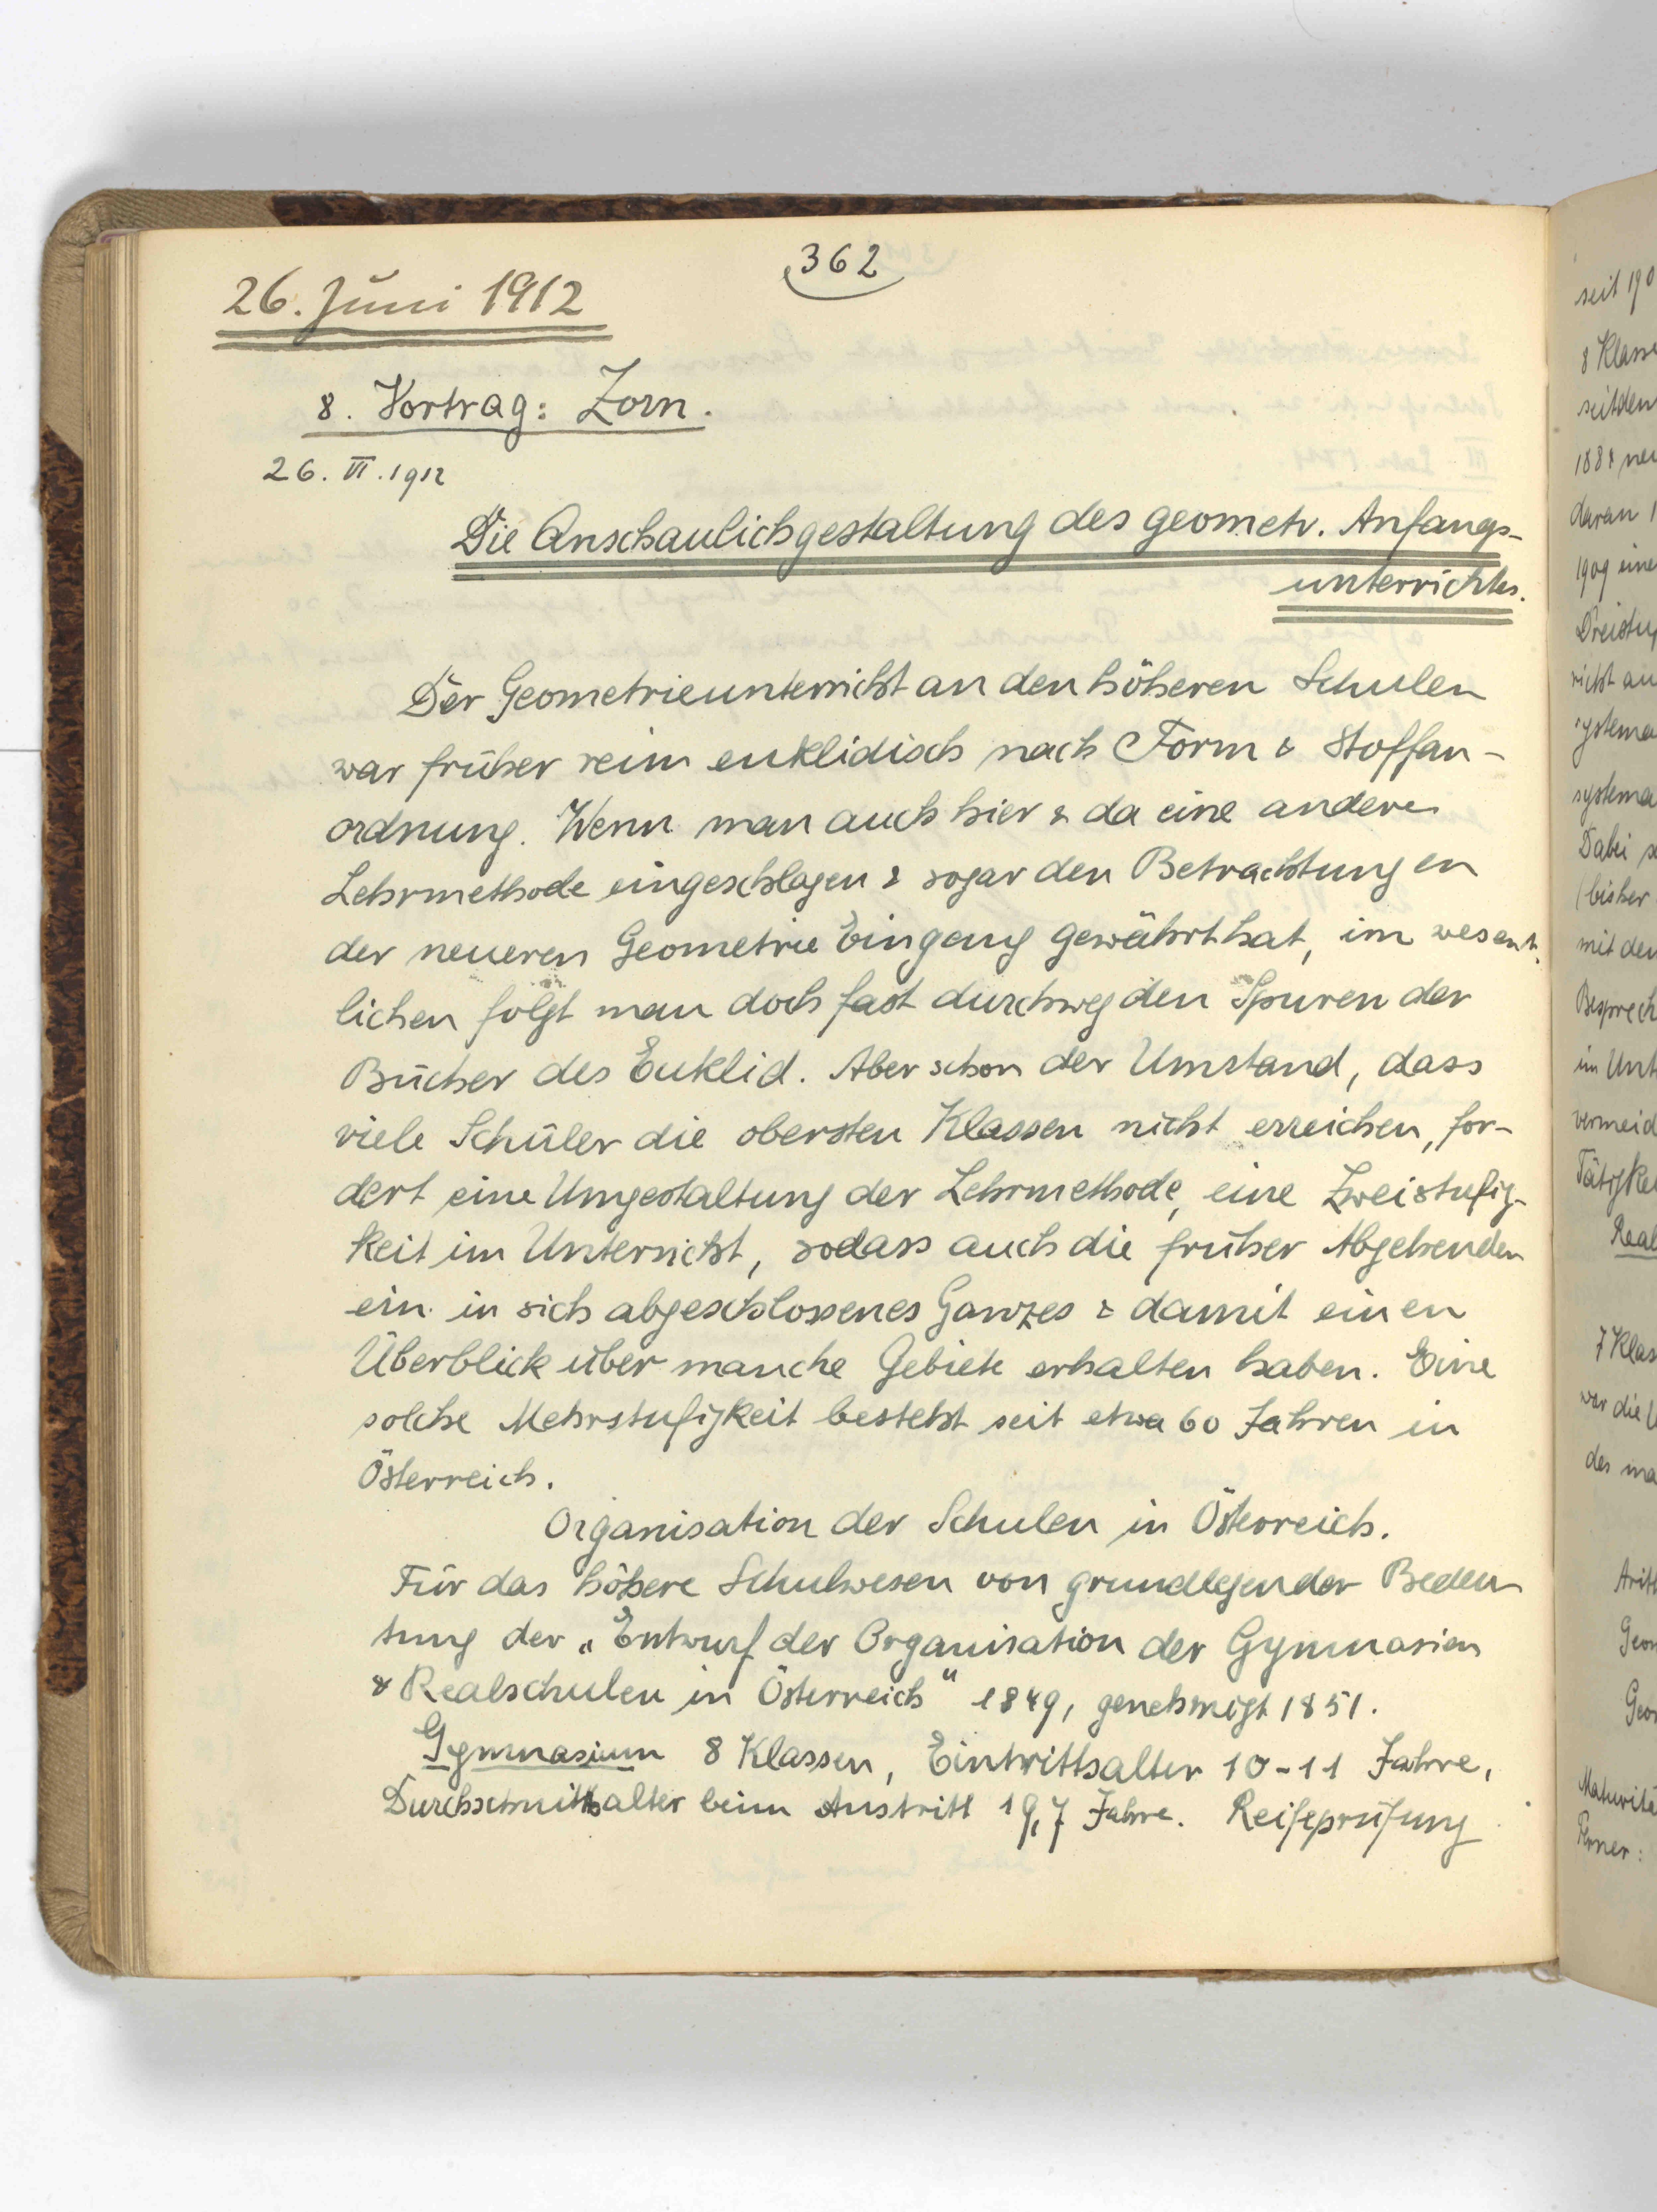 362
26. Juni 1912
8. Vortrag: Zorn.
26. VI. 1912
Die Anschaulichgestaltung des geometr. Anfangs-
unterrichts.
Der Geometrieunterricht an den höheren Schulen
war früher rein euklidisch nach Form & Stoffan-
ordnung. Wenn man auch hier & da eine andere
Lehrmethode eingeschlagen & sogar den Betrachtungen
der neueren Geometrie Eingang gewährt hat, im wesent-
lichen folgt man doch fast durchweg den Spuren der
Bücher des Euklid. Aber schon der Umstand, dass
viele Schüler die obersten Klassen nicht erreichen, for-
dert eine Umgestaltung der Lehrmethode, eine Zweistufig-
keit im Unterricht, sodass auch die früher Abgehenden
ein in sich abgeschlossenes Ganzes & damit einen
Überblick über manche Gebiete erhalten haben. Eine
solche Mehrstufigkeit besteht seit etwa 60 Jahren in
Österreich.
Organisation der Schulen in Österreich.
Für das höhere Schulwesen von grundlegender Bedeu-
tung der „Entwurf der Organisation der Gymnasien
& Realschulen in Österreich" 1849, genehmigt 1851.
Gymnasium 8 Klassen, Eintrittsalter 10-11 Jahre,
Durchschnittsalter beim Austritt 19,7 Jahre. Reifeprüfung
seit 190
8 Klasse
seitdem
daran
1909 eine
systema
Dabei
(bisher
mit den
Besprech
im Unt
vermeid
Real
7 Klas
war die
des ma
Arith
Geom
Geo
Maturitä
Ferner: